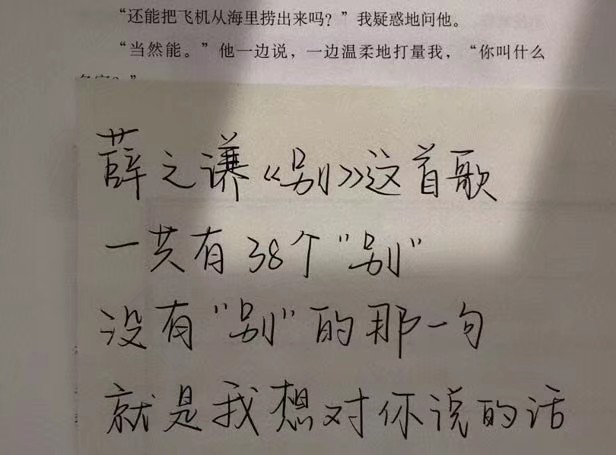 “还能把飞机从海里捞出来吗？”我疑惑地问他。
“当然能。”他一边说，一边温柔地打量我，“你叫什么
薛之谦《别》这首歌
一共有38个“别”
没有“别”的那一句
就是我想对你说的话